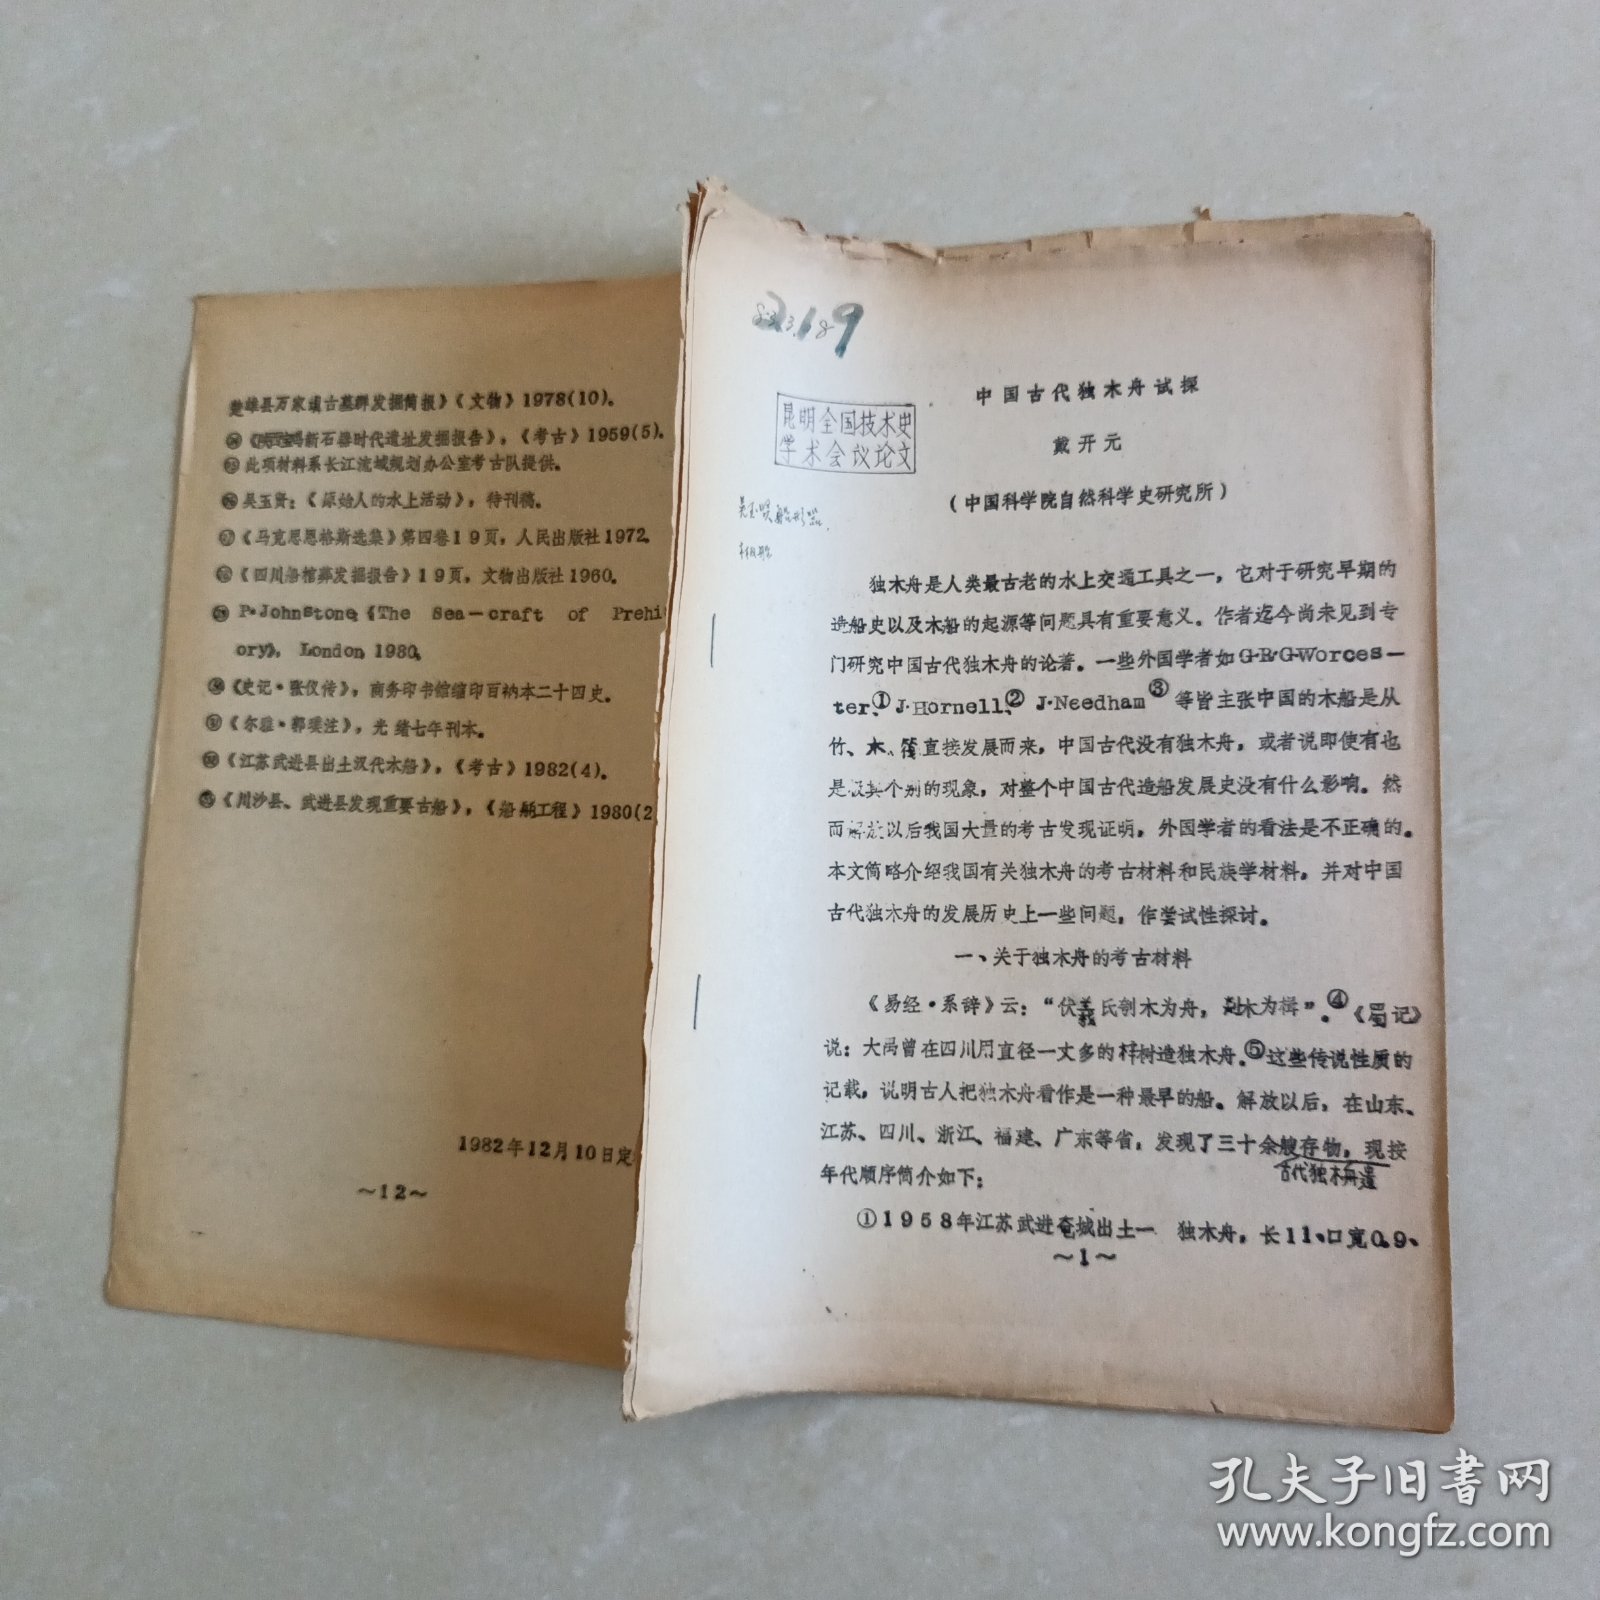 楚雄县万家坝古墓群发掘简报》《文物》1978(10)。
新石器时代遗址发掘报告》，《考古》1959(5)．
此项材料系长江流域规划办公室考古队提供。
吴玉贤：《原始人的水上活动》，待刊稿。
《马克思恩格斯选集》第四卷19页，人民出版社1972．
《四川船棺葬发掘报告》19页，文物出版社1960．
P·Johnstone《The Sea—craft of Prehi
ory》, London 1980
《史记·张仪传》，商务印书馆缩印百衲本二十四史．
《尔雅·郭璞注》，光绪七年刊本。
《江苏武进县出土汉代木船》，《考古》1982(4)．
《川沙县、武进县发现重要古船》，《船舶工程》1980(2
1982年12月10日定
～12～
昆明全国技术史
学术会议论文
中国古代独木舟试探
戴开元
(中国科学院自然科学史研究所)
独木舟是人类最古老的水上交通工具之一，它对于研究早期的
造船史以及木船的起源等问题具有重要意义．作者迄今尚未见到专
门研究中国古代独木舟的论著。一些外国学者如G·R·G·Worces—
ter、① J·Hornell、② J·Needham③等皆主张中国的木船是从
竹、木、筏直接发展而来，中国古代没有独木舟，或者说即使有也
是极其个别的现象，对整个中国古代造船发展史没有什么影响．然
而解放以后我国大量的考古发现证明，外国学者的看法是不正确的。
本文简略介绍我国有关独木舟的考古材料和民族学材料，并对中国
古代独木舟的发展历史上一些问题，作尝试性探讨。
一、关于独木舟的考古材料
《易经·系辞》云：“伏羲氏刳木为舟，剡木为楫”．④《蜀记》
说：大禹曾在四川用直径一丈多的梓树造独木舟．⑤这些传说性质的
记载，说明古人把独木舟看作是一种最早的船。解放以后，在山东、
江苏、四川、浙江、福建、广东等省，发现了三十余艘存物，现按
古代独木舟遗
年代顺序简介如下：
①1958年江苏武进奄城出土一 独木舟，长11、口宽0.9、
～1～
孔夫子旧书网
www.kongfz.com